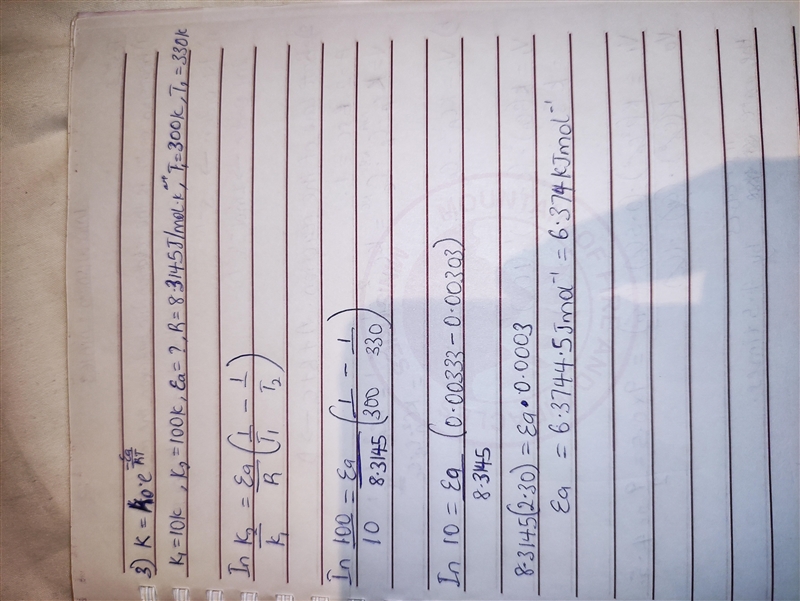 3) K = K₀·e^(-Ea/RT)
K₁=10k, K₂=100k, Ea=?, R=8.3145J/mol·k, T₁=300k, T₂=330k
In K₂/K₁ = Ea/R (1/T₁ - 1/T₂)
In 100/10 = Ea/8.3145 (1/300 - 1/330)
In 10 = Ea/8.3145 (0.00333 - 0.00303)
8.3145(2.30) = Ea • 0.0003
Ea = 6.3744.5Jmol⁻¹ = 6.374kJmol⁻¹